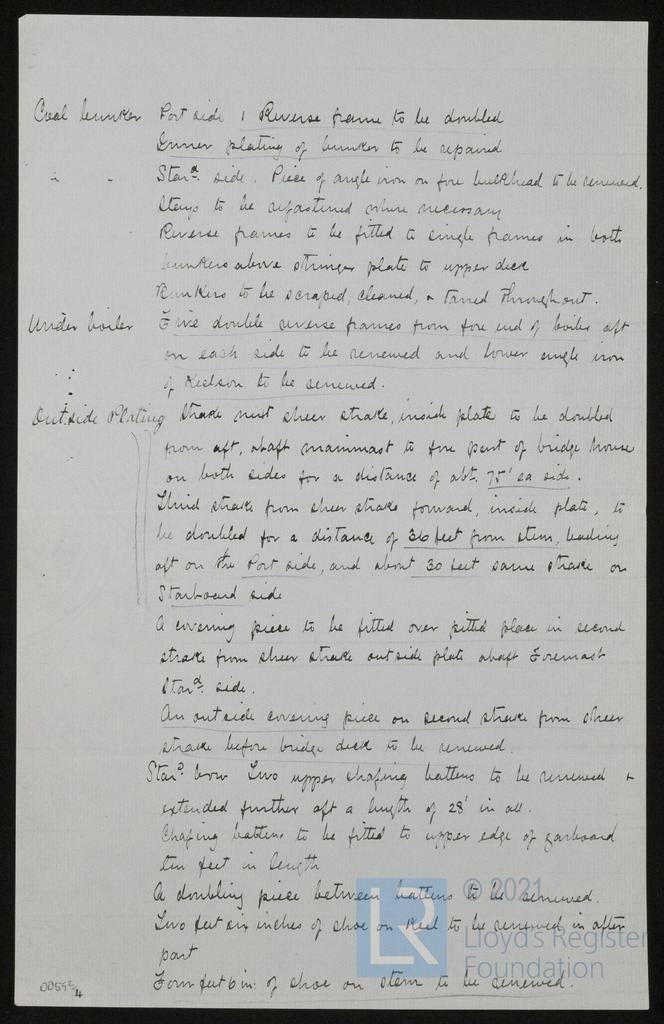 Coal bunker Port side 1 Reverse frame to be doubled
Inner plating of bunker to be repaired
" " Starᵈ. side. Piece of angle iron on fore bulkhead to be renewed.
Stays to be refastened where necessary
Reverse frames to be fitted to single frames in both
bunkers above stringer plate to upper deck
Bunkers to be scraped, cleaned, & tarred throughout.
Under boiler Five double reverse frames from fore end of boiler aft
on each side to be renewed and lower angle iron
of Keelson to be renewed.
Outside Plating Strake next sheer strake, inside plate to be doubled
from aft, abaft mainmast to fore part of bridge house
on both sides for a distance of abt. 75' ea side.
Third strake from sheer strake forward, inside plate, to
be doubled for a distance of 36 feet from stem, leading
aft on the Port side, and about 30 feet same strake on
Starboard side
A covering piece to be fitted over pitted place in second
strake from sheer strake outside plate abaft Foremast
Starᵈ. side.
An outside covering piece on second strake from sheer
strake before bridge deck to be renewed.
Starᵈ. bow Two upper chafing battens to be renewed +
extended further aft a length of 28' in all.
Chafing battens to be fitted to upper edge of garboard
ten feet in length
A doubling piece between battens to be renewed.
Two feet six inches of shoe on Keel to be renewed in after
part
Four feet 6 in: of shoe on stem to be renewed.
LR © 2021
Lloyd's Register
Foundation